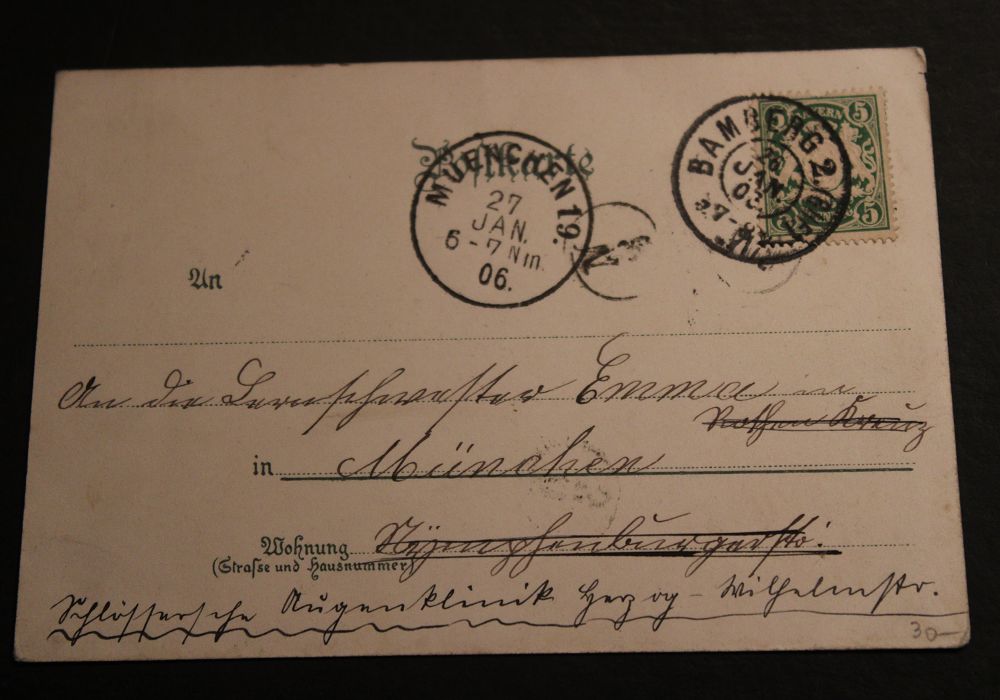 Postkarte
BAYERN
5
5
BAMBERG 2.
26
JAN
MUENCHEN 19.
27
JAN.
6-7 Nm.
06.
An
An die Lernschwester Emma im
Rothen Kreuz
in München
Wohnung Nymphenburgerstr.
(Strasse und Hausnummer)
Schlössersche Augenklinik Herzog-Wilhelmstr.
30-